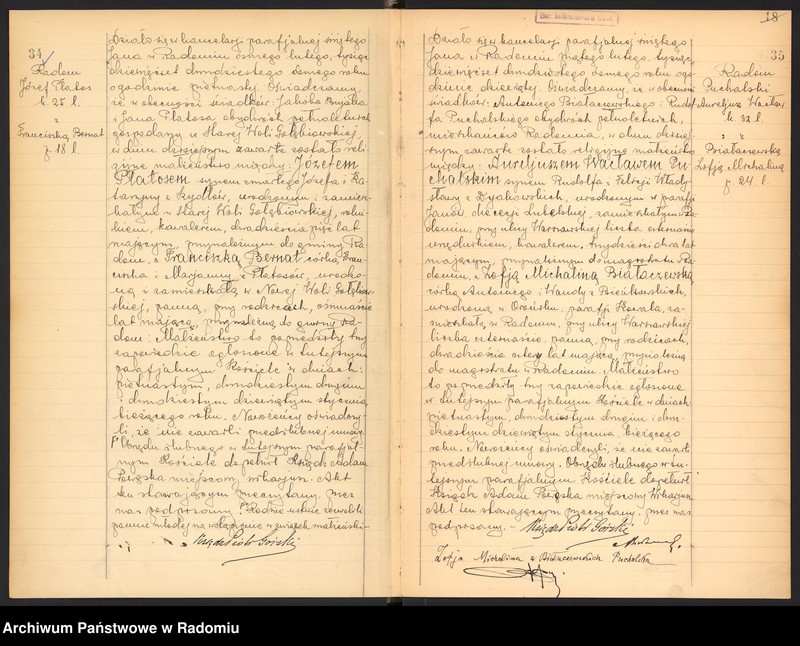 34
Radom
Józef Płatos
l. 25 l.
"
Franciszka Bernat
p. 18 l.
Działo się w kancelarji parafjalnej świętego
Jana w Radomiu ósmego lutego, tysiąc
dziewięćset dwudziestego ósmego roku
o godzinie piętnastej. Oświadczamy,
że w obecności świadków: Jakóba
i Jana Płatosa obydwóch pełnoletnich
gospodarzy w Starej Woli Gołębiowskiej,
w dniu dzisiejszym zawarte zostało reli-
gijne małżeństwo między: Józefem
Płatosem synem zmarłego Józefa i Ka-
tarzyny z urodzonym i zamiesz-
kałym w Starej Woli Gołębiowskiej, rolni-
kiem, kawalerem, dwadzieścia pięć lat
mającym, przynależnym do gminy Ra-
dom, a Franciszką Bernat córką Fran-
ciszka i Marjanny z Płatosów, urodzo-
ną i zamieszkałą w Nowej Woli Gołębiow-
skiej, panną, przy rodzicach, ośmnaście
lat mającą, przynależną do gminy Ra-
dom. Małżeństwo to poprzedziły trzy
zapowiedzie ogłoszone w tutejszym
parafjalnym Kościele w dniach:
piętnastym, dwudziestym drugim
i dwudziestym dziewiątym stycznia
bieżącego roku. Nowożeńcy oświadczy-
li, że nie zawarli przedślubnej umowy.
Obrzędu ślubnego w tutejszym parafjal-
nym Kościele dopełnił Ksiądz Adam
Popęska miejscowy wikarjusz. Akt
ten stawającym przeczytany, przez
nas podpisany. Rodzice ustnie zezwolili
pannie młodej na wstąpienie w związek małżeński.-
Ksiądz Piotr Górski
18
35
Radom
Puchalski
Aureljusz Wacław
k. 32 l.
" "
Białaczewska
Zofja Michalina
p. 24 l.
Działo się w kancelarji parafjalnej świętego
Jana w Radomiu piątego lutego, tysiąc
dziewięćset dwudziestego ósmego roku o go-
dzinie dziewiętej. Oświadczamy, że w obecności
świadków: Antoniego Białaczewskiego i Rudol-
fa Puchalskiego obydwóch pełnoletnich,
mieszkańców Radomia, w dniu dzisiej-
szym zawarte zostało religijne małżeństwo
między: Aureljuszem Wacławem Pu-
chalskim synem Rudolfa i Felicji Włady-
sławy z Dyakowskich, urodzonym w parafji
Janów, diecezji Lubelskiej, zamieszkałym w Ra-
domiu, przy ulicy Warszawskiej liczba
urzędnikiem, kawalerem, trzydzieści dwa lat
mającym, przynależnym do magistratu Ra-
domiu, a Zofją Michaliną Białaczewską
córką Antoniego i Wandy z
urodzoną w Orońsku, parafji Kowala, za-
mieszkałą w Radomiu, przy ulicy Warszawskiej
liczba czternaście, panną, przy rodzicach,
dwadzieścia cztery lat mającą, przynależną
do magistratu w Radomiu. Małżeństwo
to poprzedziły trzy zapowiedzie ogłoszone
w tutejszym parafjalnym Kościele w dniach:
piętnastym, dwudziestym drugim i dwu-
dziestym dziewiątym stycznia, bieżącego
roku. Nowożeńcy oświadczyli, że nie zawarli
przedślubnej umowy. Obrzędu ślubnego w tu-
tejszym parafjalnym Kościele dopełnił
Ksiądz Adam Popęska miejscowy Wikarjusz.
Akt ten stawającym przeczytany, przez nas
podpisany. - Ksiądz Piotr Górski
Zofja Michalina z Białaczewskich Puchalska
Archiwum Państwowe w Radomiu